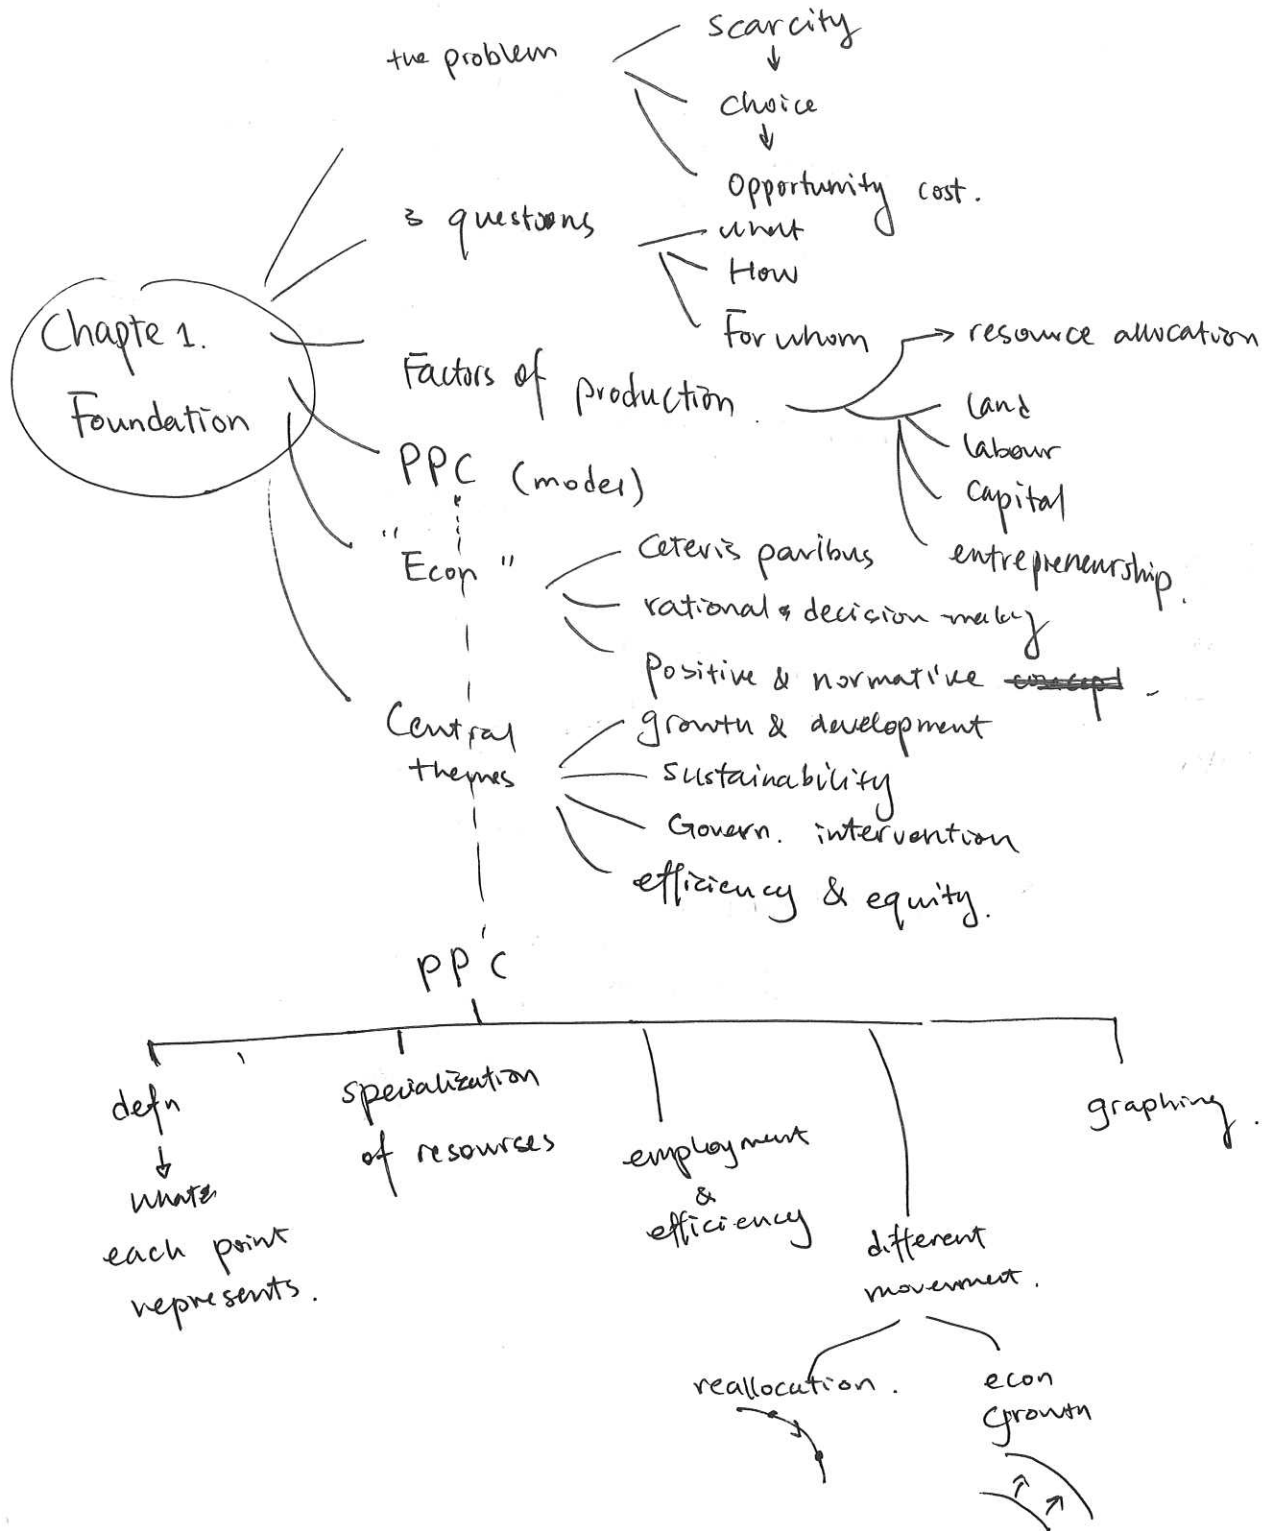 the problem
scarcity
choice
Opportunity cost.
3 questions
what
How
For whom
Chapte 1.
Foundation
Factors of production.
resource allocation
land
labour
capital
entrepreneurship.
PPC (model)
"Econ"
Ceteris paribus
rational decision making
Positive & normative
Central
themes
growth & development
sustainability
Govern. intervention
efficiency & equity.
PPC
defn
what
each point
represents.
specialization
of resourses
employment
&
efficiency
different
movement.
reallocation.
econ
growth
graphing.